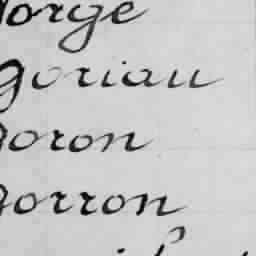 Gorge
Goriau
Goron
Gorron